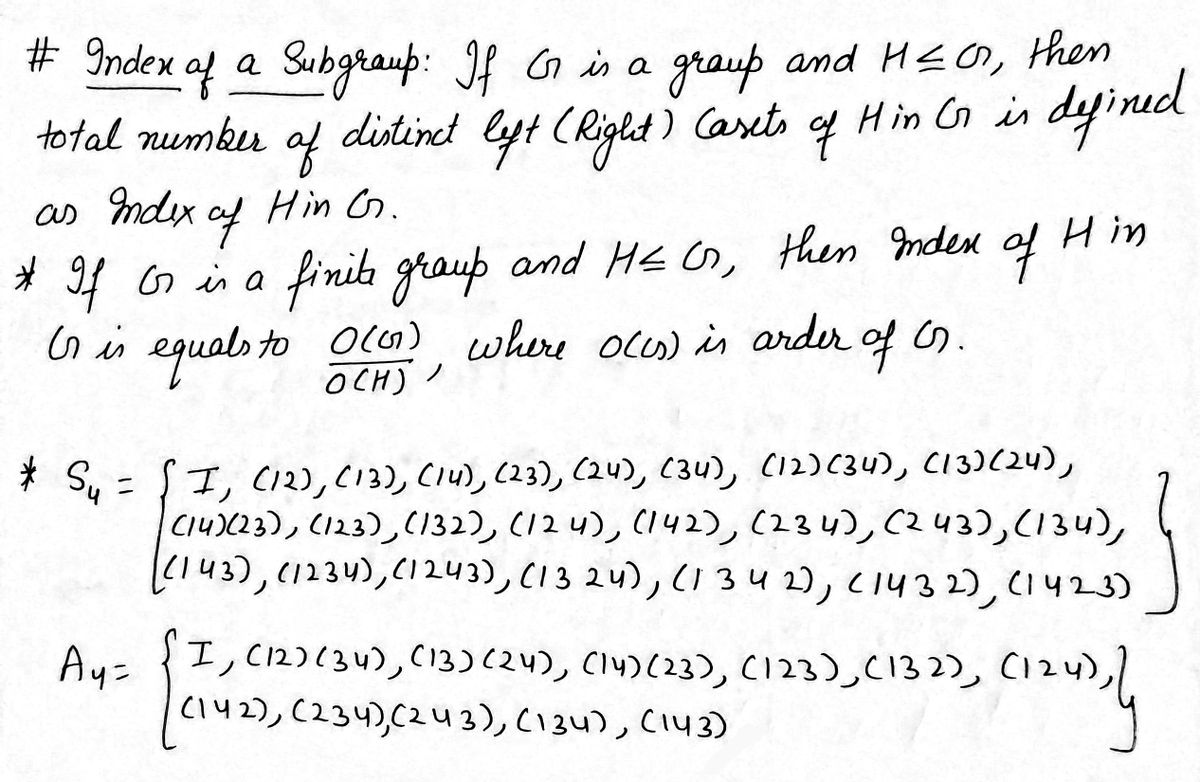 # Index of a Subgroup: If G is a group and H ≤ G, then
total number of distinct left (Right) Cosets of H in G is defined
as Index of H in G.
* If G is a finite group and H ≤ G, then Index of H in
G is equals to O(G)/O(H), where O(G) is order of G.
* S₄ = { I, (12), (13), (14), (23), (24), (34), (12)(34), (13)(24),
(14)(23), (123), (132), (124), (142), (234), (243), (134),
(143), (1234), (1243), (1324), (1342), (1432), (1423) }
A₄ = { I, (12)(34), (13)(24), (14)(23), (123), (132), (124),
(142), (234), (243), (134), (143) }